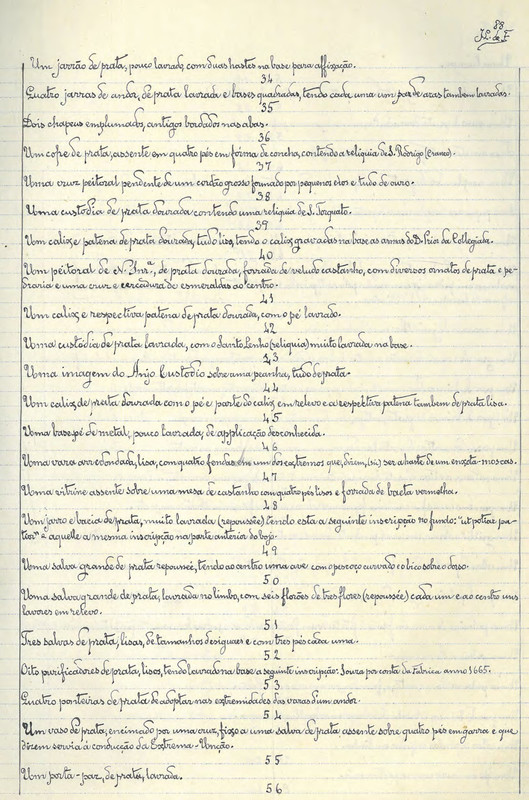 88
Um jarrão de prata, pouco lavrado, com duas hastes na base para affixação.
34
Quatro jarras de andor, de prata lavrada e bases quadradas, tendo cada uma um par de azas tambem lavradas.
35
Dois chapeus emplumados, antigos bordados nas abas.
36
Um cofre de prata, assente em quatro pés em fórma de concha, contendo a reliquia de S. Rodrigo (craneo).
37
Uma cruz peitoral pendente de um cordão grosso formado por pequenos elos e tudo de ouro.
38
Uma custódia de prata dourada contendo uma reliquia de S. Torquato.
39
Um calix e patena de prata dourada, tudo liso, tendo o calix gravadas na base as armas do D. Prior da Collegiada.
40
Um peitoral de N. Snrª. de prata dourada, forrada de veludo castanho, com diversos ornatos de prata e pe-
draria e uma cruz e cercadura de esmeraldas ao centro.
41
Um calix e respectiva patena de prata dourada, com o pé lavrado.
42
Uma custódia de prata lavrada, com o Santo Lenho (reliquia) muito lavrada na base.
43
Uma imagem do Anjo Custodio sobre uma peanha, tudo de prata.
44
Um calix de prata dourada com o pé e parte do calix em relevo e a respectiva patena tambem de prata lisa.
45
Uma base, pé de metal, pouco lavrada, de applicação desconhecida.
46
Uma vara arredondada, lisa, com quatro fendas em um dos extremos que, dizem, (sic) ser a haste de um enxota-moscas.
47
Uma vitrine assente sobre uma mesa de castanho com quatro pés lisos e forrada de baeta vermelha.
48
Um jarro e bacia de prata, muito lavrada (repoussée) tendo esta a seguinte inscripção no fundo: "ut potiar pa-
tior" e aquelle a mesma inscripção na parte anterior do bojo.
49
Uma salva grande de prata repoussée, tendo ao centro uma ave com o pescoço curvado e o bico sobre o dorso.
50
Uma salva grande de prata, lavrada no limbo, com seis florões de tres flores (repoussée) cada um e ao centro uns
lavores em relevo.
51
Tres salvas de prata, lisas, de tamanhos desiguaes e com tres pés cada uma.
52
Oito purificadores de prata, lisos, tendo lavrado na base a seguinte inscripção: Souza por conta da Fabrica anno 1665.
53
Quatro ponteiras de prata de adoptar nas extremidades das varas d'um andor.
54
Um vaso de prata, encimado por uma cruz, fixo a uma salva de prata assente sobre quatro pés em garra e que
dizem servia á condução da Extrema-Unção.
55
Um porta-paz, de prata, lavrada.
56